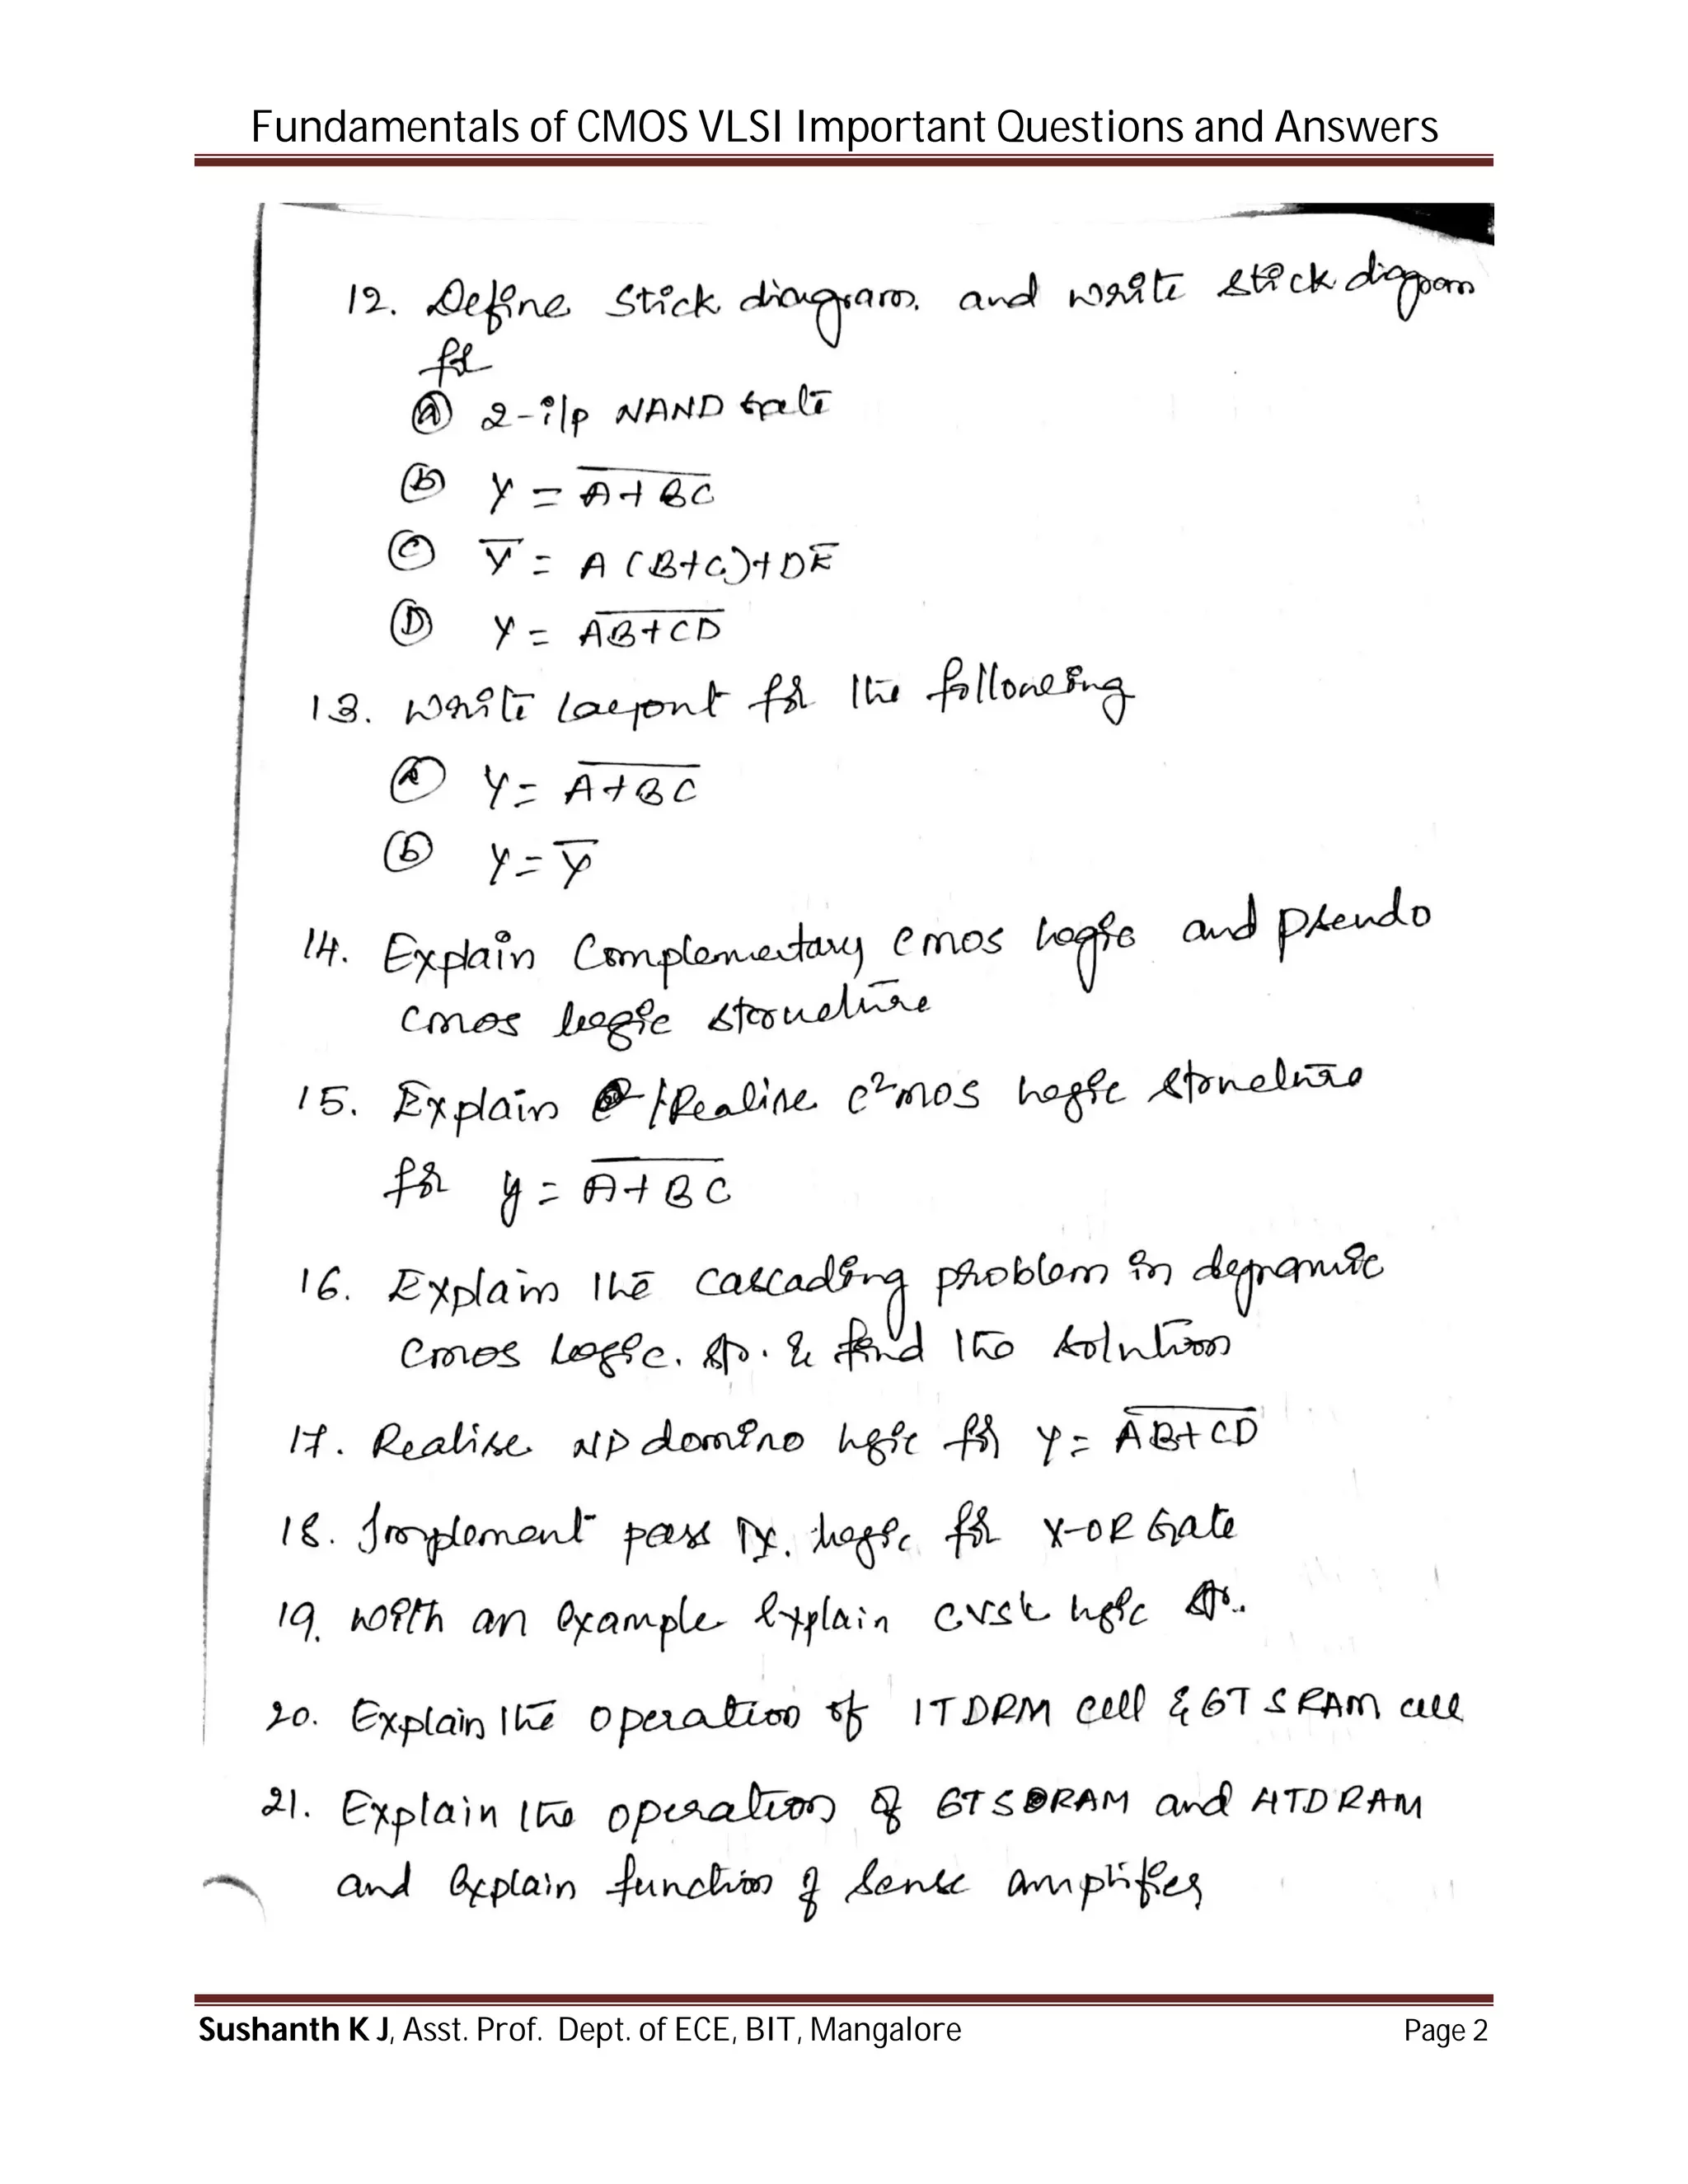 Fundamentals of CMOS VLSI Important Questions and Answers
12. Define Stick diagram. and write stick diagram
for
(A) 2-i/p NAND Gate
(b) Y = \overline{A+BC}
(c) \overline{Y} = A(B+C)+DE
(D) Y = \overline{AB+CD}
13. Write layout for the following
(a) Y = \overline{A+BC}
(b) Y = \overline{Y}
14. Explain Complementary Cmos logic and pseudo
Cmos logic structure
15. Explain /Realise C²mos logic structure
for y = \overline{A+BC}
16. Explain the Cascading problem in dynamic
Cmos Logic. & find the solution
17. Realise NP domino logic for Y = \overline{AB+CD}
18. Implement pass Tx. logic for X-OR Gate
19. With an Example Explain CVSL logic
20. Explain the operation of 1TDRM Cell & 6T SRAM cell
21. Explain the operation of 6T SRAM and 4TDRAM
and Explain function of Sense amplifier
Sushanth K J, Asst. Prof. Dept. of ECE, BIT, Mangalore Page 2